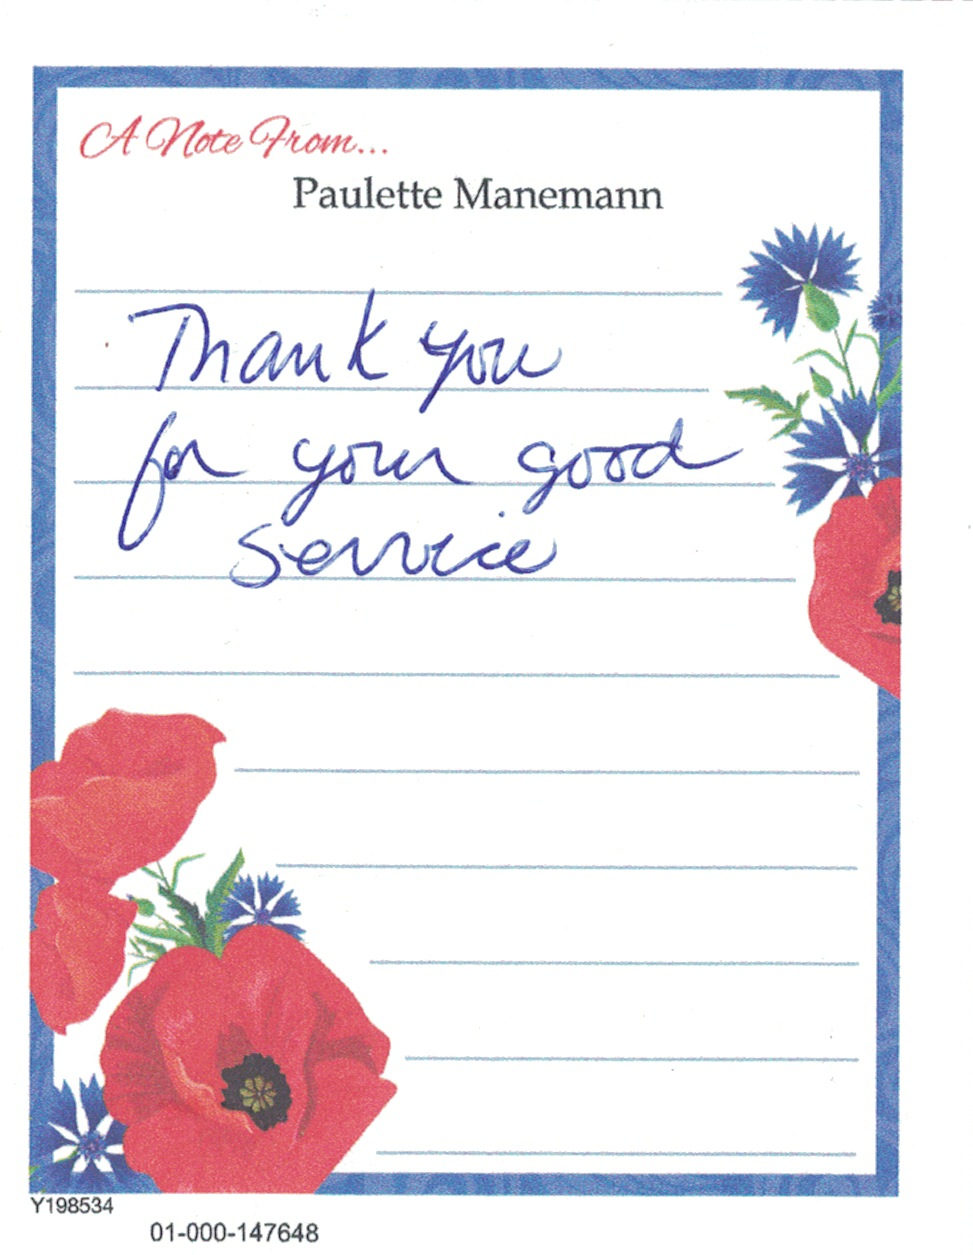 A Note From...
Paulette Manemann
Thank you
for your good
service
Y198534
01-000-147648